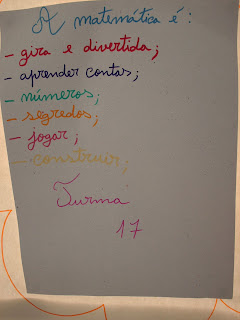 A matemática é:
- gira e divertida;
- aprender contas;
- números;
- segredos;
- jogar;
- construir;
Turma
17